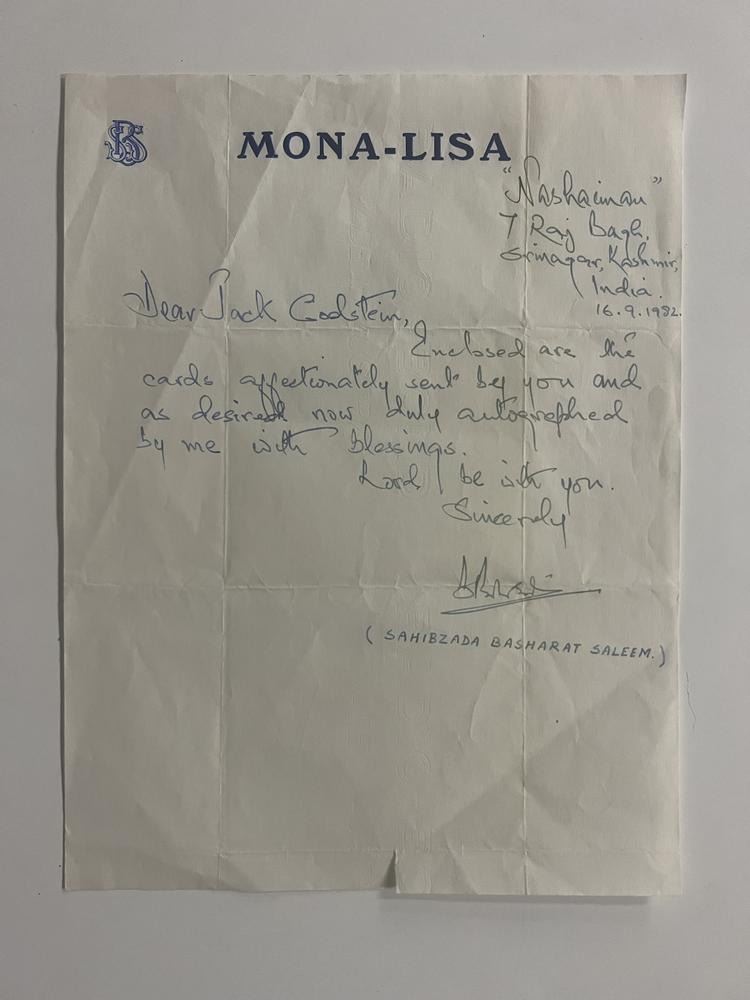 SBS
MONA-LISA
"Nashaiman"
7 Raj Bagh,
Srinagar, Kashmir,
India.
16.9.1982.
Dear Jack Godstein,
Enclosed are the
cards affectionately sent by you and
as desired now duly autographed
by me with blessings.
Lord be with you.
Sincerely
( SAHIBZADA BASHARAT SALEEM.)